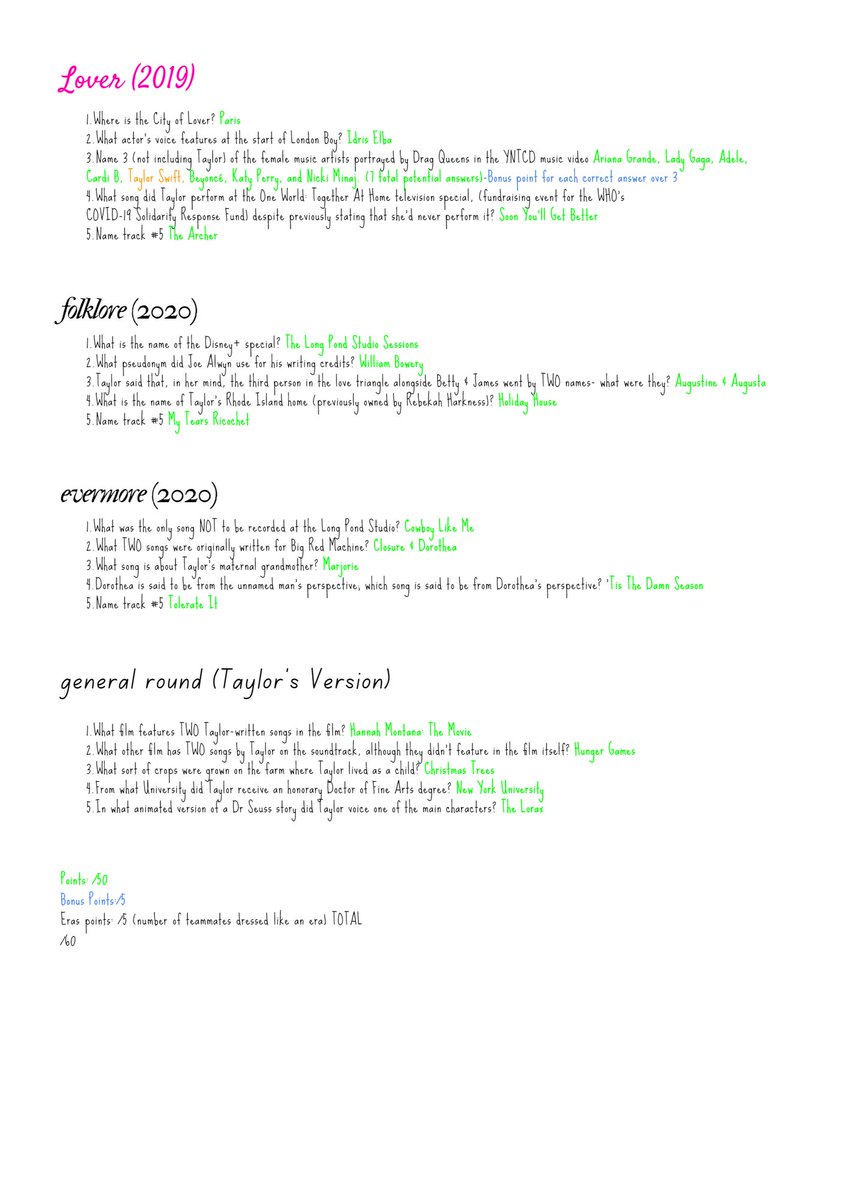 Lover (2019)
1. Where is the City of Lover? Paris
2. What actor's voice features at the start of London Boy? Idris Elba
3. Name 3 (not including Taylor) of the female music artists portrayed by Drag Queens in the YNTCD music video Ariana Grande, Lady Gaga, Adele,
Cardi B, Taylor Swift, Beyoncé, Katy Perry, and Nicki Minaj. (7 total potential answers)-Bonus point for each correct answer over 3
4. What song did Taylor perform at the One World: Together At Home television special, (fundraising event for the WHO's
COVID-19 Solidarity Response Fund) despite previously stating that she'd never perform it? Soon You'll Get Better
5. Name track #5 The Archer
folklore (2020)
1. What is the name of the Disney+ special? The Long Pond Studio Sessions
2. What pseudonym did Joe Alwyn use for his writing credits? William Bowery
3. Taylor said that, in her mind, the third person in the love triangle alongside Betty & James went by TWO names- what were they? Augustine & Augusta
4. What is the name of Taylor's Rhode Island home (previously owned by Rebekah Harkness)? Holiday House
5. Name track #5 My Tears Ricochet
evermore (2020)
1. What was the only song NOT to be recorded at the Long Pond Studio? Cowboy Like Me
2. What TWO songs were originally written for Big Red Machine? Closure & Dorothea
3. What song is about Taylor's maternal grandmother? Marjorie
4. Dorothea is said to be from the unnamed man's perspective, which song is said to be from Dorothea's perspective? 'Tis The Damn Season
5. Name track #5 Tolerate It
general round (Taylor's Version)
1. What film features TWO Taylor-written songs in the film? Hannah Montana: The Movie
2. What other film has TWO songs by Taylor on the soundtrack, although they didn't feature in the film itself? Hunger Games
3. What sort of crops were grown on the farm where Taylor lived as a child? Christmas Trees
4. From what University did Taylor receive an honorary Doctor of Fine Arts degree? New York University
5. In what animated version of a Dr Seuss story did Taylor voice one of the main characters? The Lorax
Points: /50
Bonus Points:/5
Eras points: /5 (number of teammates dressed like an era) TOTAL
/60